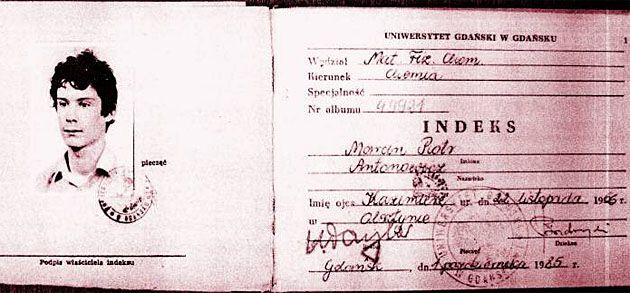 pieczęć
Podpis właściciela indeksu
UNIWERSYTET GDAŃSKI W GDAŃSKU
1
Wydział Mat. Fiz. Chem.
Kierunek Chemia
Specjalność
Nr albumu
INDEKS
Marcin Piotr
Imiona
Antonowicz
Nazwisko
Imię ojca Kazimierz ur. dn. listopada 1966
w Olsztynie
Pieczęć
Dziekan
Gdańsk, dn. 1 października 1985